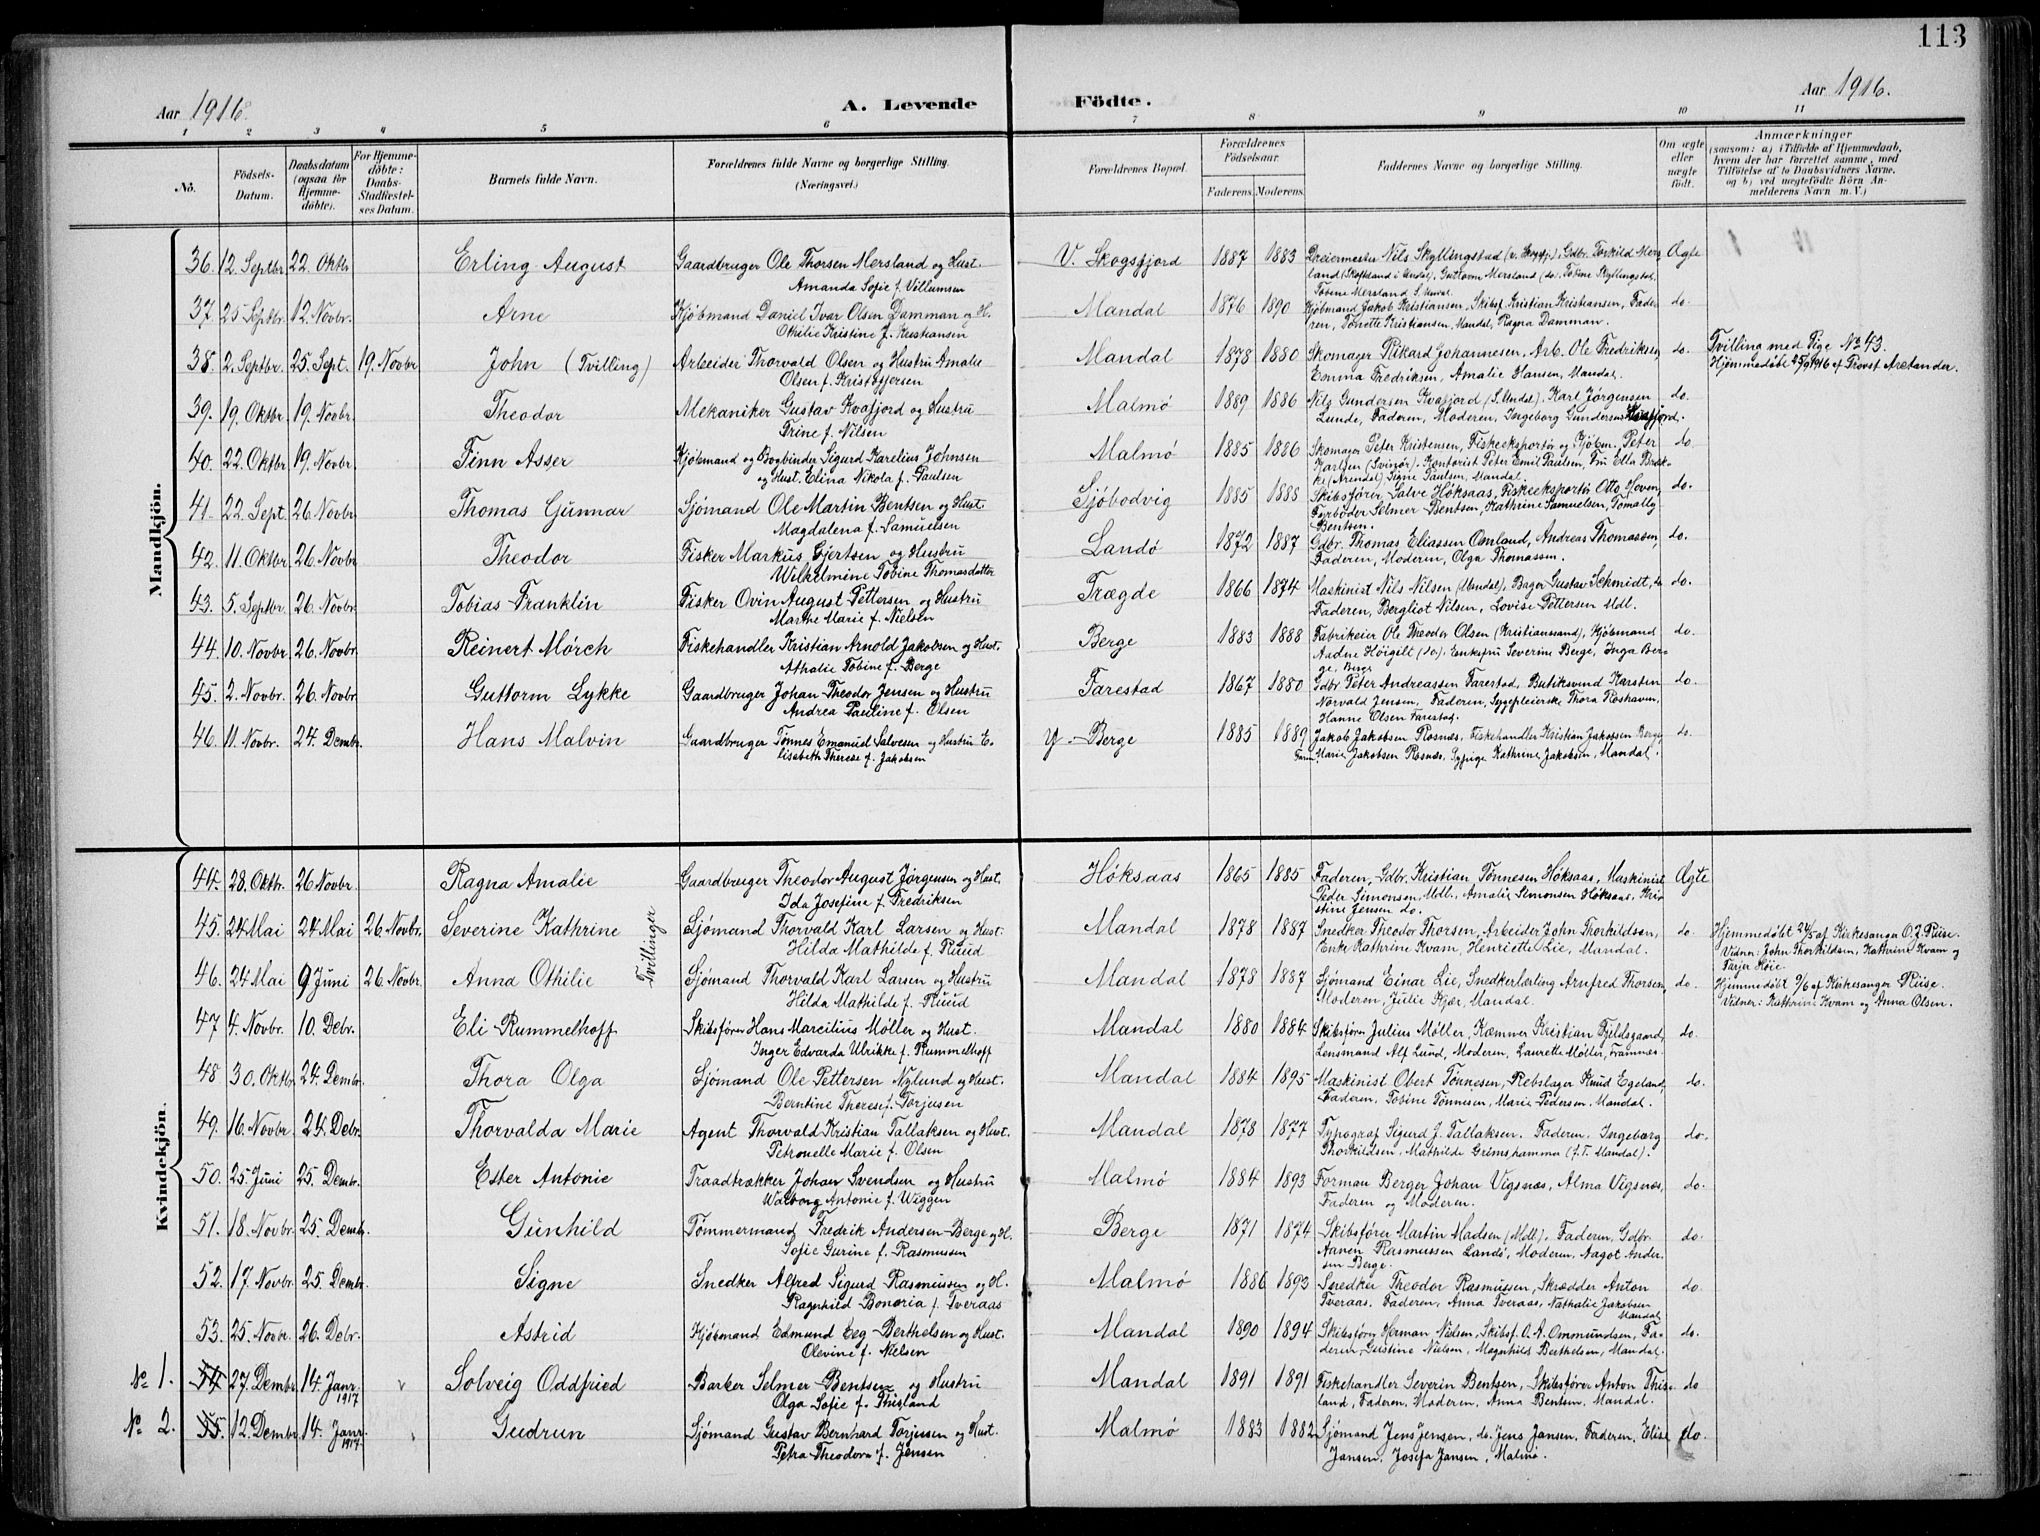 113
Aar 1916.
A. Levende
Födte.
Aar 1916.
1 2 3 4 5 6 7 8 9 10 11
No.
Födsels-Datum.
Daabsdatum (ogsaa for Hjemmedöbte).
For Hjemmedöbte: Daabs-Stadfæstelses Datum.
Barnets fulde Navn.
Forældrenes fulde Navne og borgerlige Stilling. (Næringsvei.)
Forældrenes Bopæl.
Forældrenes Födselsaar.
Faderens. Moderens.
Faddernes Navne og borgerlige Stilling.
Om ægte eller uægte födt.
Anmærkninger
(saasom: a) i Tilfælde af Hjemmedaab, hvem der har forrettet samme, med Tilföielse af to Daabsvidners Navne, og b) ved uægtefödte Börn Anmelderens Navn m. V.)
Mandkjön.
36. 12. Septbr. 22. Oktbr. Erling August Gaardbruger Ole Thorsen Mersland og Hust. V. Skogsfjord 1887 1883 Dreiermester Nils Skyllingstad (v. Skogsfj.), Gdbr. Torkild Mers- Ægte
Amanda Sofie f. Villumsen land (Skoftland i Undal), Guttorm Mersland (do), Tobine Skyllingstad,
Tobine Mersland S. Undal.
37. 25 Septbr. 12. Novbr. Arne Kjöbmand Daniel Ivar Olsen Damman og H. Mandal 1876 1890 Kjöbmand Jakob Kristiansen, Skibsf. Kristian Kristiansen, Fade- do.
Othilie Kristine f. Kristiansen ren, Tonette Kristiansen, Mandal, Ragna Damman.
38. 2. Septbr. 25. Sept. 19. Novbr John (Tvilling) Arbeider Thorvald Olsen og Hustru Amalie Mandal 1878 1880 Skomager Rikard Johannesen, Arb. Ole Fredriksen, do. Tvilling med Pige No 43.
Olsen f. Kristoffersen Emma Fredriksen, Amalie Hansen, Mandal. Hjemmedöbt 25/9 1916 af Provst Arctander.
39. 19. Oktbr. 19. Novbr. Theodor Mekaniker Gustav Kvafjord og Hustru Malmö 1889 1886 Nils Gundersen Kvafjord (S. Undal), Karl Jörgensen do.
Trine f. Nilsen Lunde, Faderen, Moderen, Ingeborg Gundersen Kvafjord.
40. 22. Oktbr. 19. Novbr. Finn Asser Kjöbmand og Bogbinder Sigurd Karelius Johnsen Malmö 1885 1886 Skomager Peter Kristensen, Fiskeeksportör og Kjöbm. Peter do.
og Hust. Elina Nikola f. Paulsen Karlsen (Svinör), Kontorist Peter Emil Paulsen, Fru Ella Bræk-
ke (Arendal) Signe Paulsen, Mandal.
41. 22. Sept. 26. Novbr. Thomas Gunnar Sjömand Ole Martin Bentsen og Hust. Sjöbodvig 1885 1888 Skibsförer Salve Höksaas, Fiskeeksportör Otto Hoven, do.
Magdalena f. Samuelsen Fyrböder Selmer Bentsen, Kathrine Samuelsen, Tomally
Bentsen.
42. 11. Oktbr. 26. Novbr. Theodor Fisker Markus Gjertsen og Hustru Landö 1872 1887 Gdbr. Thomas Eliassen Omland, Andreas Thomassen, do.
Welhelmine Tobine Thomasdatter Faderen, Moderen, Olga Thomassen.
43. 5. Septbr. 26. Novbr. Tobias Franklin Fisker Ovin August Pettersen og Hustru Trægde 1866 1874 Maskinist Nils Nilsen (Mandal), Bager Gustav Schmidt, do do.
Marthe Marie f. Nielsen Faderen, Bergliot Nilsen, Lovise Pettersen Mdl.
44. 10. Novbr. 26. Novbr. Reinert Mörch Fiskehandler Kristian Arnold Jakobsen og Hust. Berge 1883 1888 Fabrikeier Ole Theodor Olsen (Kristianssand), Kjöbmand do.
Athalie Tobine f. Berge Aadne Höigilt (do.) Enkefru Severine Berge, Inga Ber-
ge, Berge
45. 2. Novbr. 26. Novbr. Guttorm Lykke Gaardbruger Johan Theodor Jensen og Hustru Farestad 1867 1880 Gdbr Peter Andreassen Farestad, Butiksvend Karsten do.
Andrea Pauline f. Olsen Norvald Jensen, Faderen, Sygepleierske Thora Roshaven,
Hanne Olsen Farestad.
46. 11. Novbr. 24. Dembr. Hans Malvin Gaardbruger Tönnes Emanuel Salvesen og Hustru E- Y. Berge 1885 1889 Jakob Jakobsen Rosnæs, Fiskehandler Kristian Jakobsen Berge, do.
lisabeth Therese f. Jakobsen Marie Jakobsen Rosnæs, Sypige Kathrine Jakobsen, Mandal.
Kvindekjön.
44. 28. Oktbr. 26 Novbr. Ragna Amalie Gaardbruger Theodor August Jörgensen og Hust. Höksaas 1865 1885 Faderen, Gdbr. Kristian Tönnesen Höksaas, Maskinist Ægte
Ida Josefine f. Fredriksen Peder Simonsen, Mdl., Amalie Simonsen Höksaas, Kri-
stine Jensen do.
45. 24 Mai 24 Mai 26. Novbr. Severine Kathrine Tvillinger Sjömand Thorvald Karl Larsen og Hust. Mandal 1878 1887 Snedker Theodor Thorsen, Arbeider John Thorkildsen, do. Hjemmedöbt 24/5 af Kirkesanger O. J. Riise.
Hilda Mathilde f. Ruud Enke Kathrine Kvam, Henriette Lie, Mandal. Vidner: John Thorkildsen, Kathrine Kvam og
Tarjer Höie
46. 24 Mai 9 Juni 26. Novbr. Anna Othilie Sjömand Thorvald Karl Larsen og Hustru Mandal 1878 1887 Sjömand Einar Lie, Snedkerlærling Arnfred Thorsen, do. Hjemmedöbt 9/6 af Kirkesanger Riise.
Hilda Mathilde f. Ruud Moderen, Julie Kjær, Mandal. Vidner: Kathrine Kvam og Anna Olsen.
47 4. Novbr. 10. Debr. Eli Rummelhoff Skibsförer Hans Marcilius Möller og Hust. Mandal 1880 1884 Skibsförer Julius Möller, Kæmner Kristian Fjeldsgaard, do.
Inger Edvarda Ulrikke f. Rummelhoff Lensmand Alf Lund, Moderen, Laurette Möller, Framnes.
48 30. Oktbr. 24. Dembr. Thora Olga Sjömand Ole Pettersen Nylund og Hust. Mandal 1884 1895 Maskinist Obert Tönnesen, Rebslager Knud Egeland, do.
Berntine Therese f. Torjusen Faderen, Tobine Tönnesen, Marie Pedersen, Mandal.
49. 16. Novbr 24. Debr. Thorvalda Marie Agent Thorvald Kristian Tallaksen og Hust. Mandal 1878 1877 Typograf Sigurd J. Tallaksen. Faderen, Ingeborg do.
Petronelle Marie f. Olsen Thorkildsen, Mathilde Grimshamma (f. T. Mandal).
50. 25. Juni 25. Dembr. Ester Antonie Traadtrækker Johan Svendsen og Hustru Malmö 1884 1893 Forman Berger Johan Vigsnæs, Alma Vigsnæs, do.
Walborg Antonie f. Wiggen Faderen og Moderen.
51. 18. Novbr. 25. Dembr. Gunhild Tömmermand Fredrik Andersen Berge og H. Berge 1871 1874 Skibsförer Martin Madsen (Mdl). Faderen, Gdbr. do.
Sofie Gurine f. Rasmussen Aanen Rasmussen Landö, Moderen, Aagot Ander-
sen Berge.
52. 17. Novbr. 25. Dembr. Signe Snedker Alfred Sigurd Rasmussen og H. Malmö 1886 1893 Snedker Theodor Rasmussen, Skrædder Anton do.
Ragnhild Bonoria f. Tveraas Tveraas, Faderen, Anna Tveraas, Nathalie Jakobsen
Mandal
53. 25. Novbr. 26. Debr. Astrid Kjöbmand Edmund Eeg Berthelsen og Hust. Mandal 1890 1894 Skibsförer Herman Nielsen, Skibsf. O. A. Ommundsen, Fa- do.
Olevine f. Nielsen deren, Gustine Nielsen, Magnhild Berthelsen, Mandal.
No 1. 54 27. Dembr 14. Janr. 1917 Solveig Oddfried Barker Selmer Bentsen og Hustru Mandal 1891 1891 Fiskehandler Severin Bentsen, Skibsförer Anton This- do
Olga Sofie f. Thisland land, Faderen, Moderen, Anna Bentsen, Mandal.
No 2. 55. 12. Dembr 14. Janr. 1917 Gudrun Sjömand Gustav Bernhard Torjusen og Hust. Malmö 1883 1882 Sjömand Jens Jensen, do. Jens Jansen, Faderen, Elise do.
Petra Theodora f. Jensen Jansen, Josefa Jansen, Malmö.